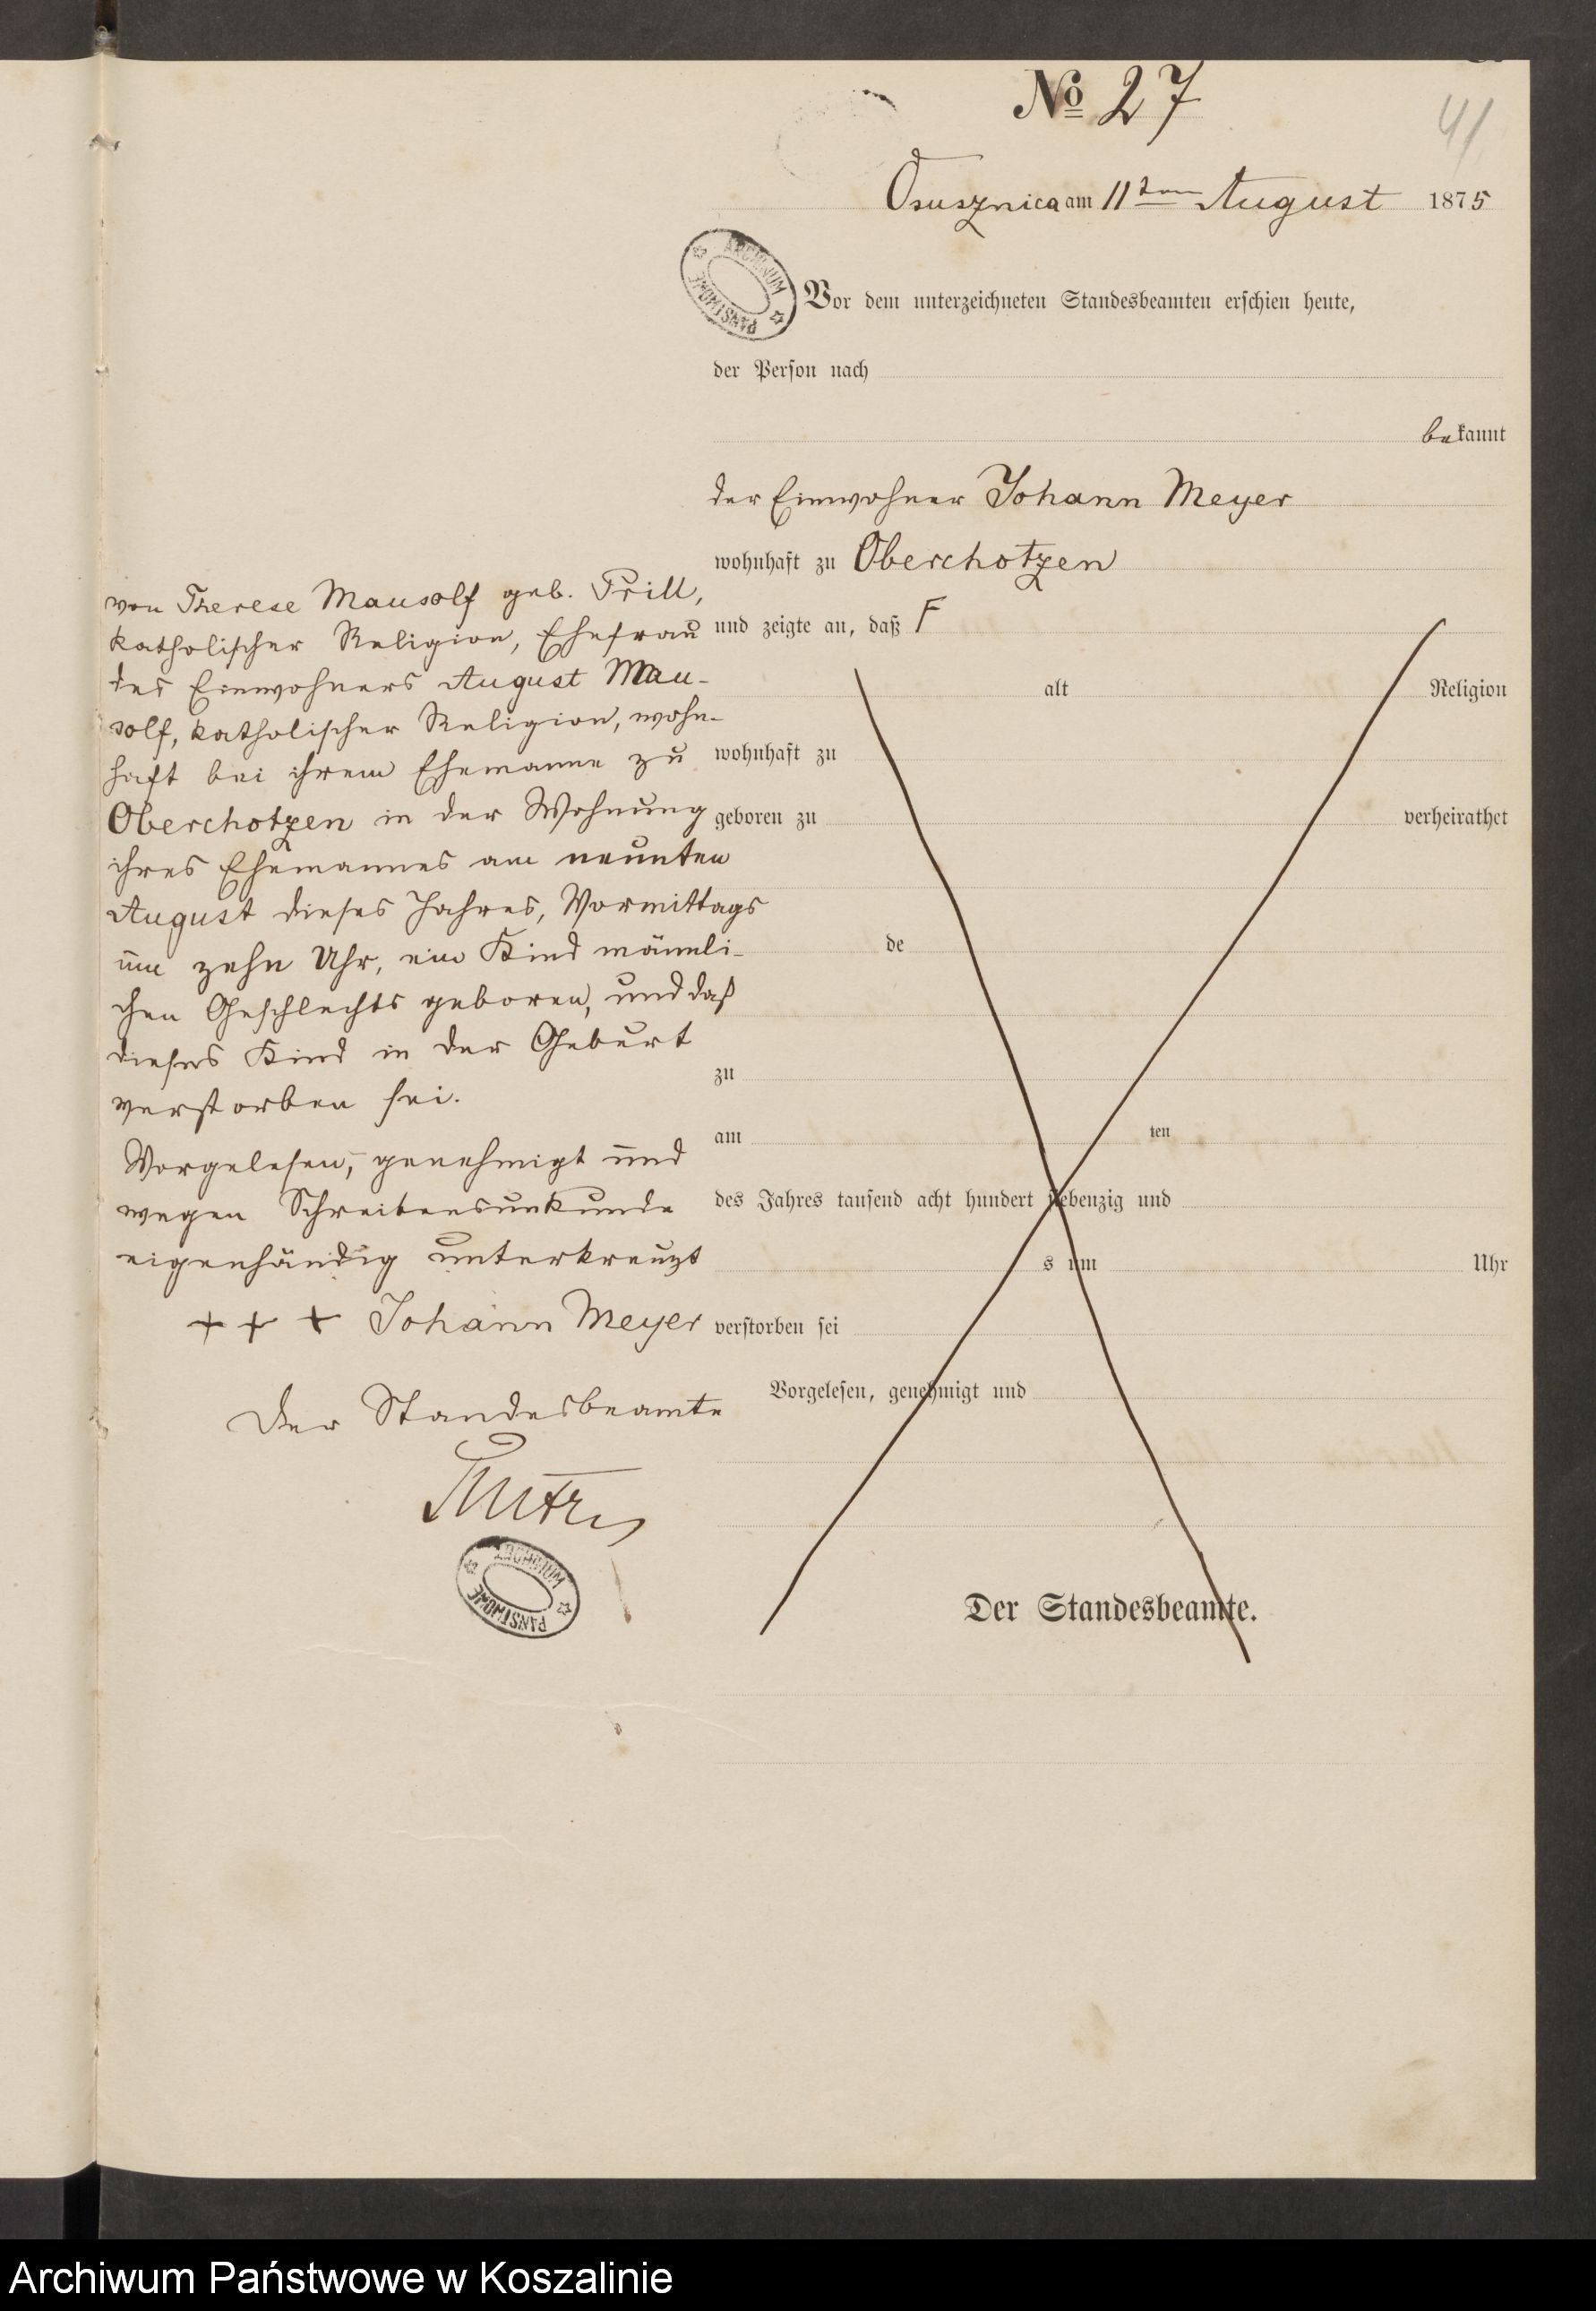 № 27
41
Osusznica am 11ten August 1875
ARCHIWUM PAŃSTWOWE
Vor dem unterzeichneten Standesbeamten erschien heute,
der Person nach
bekannt
der Einwohner Johann Meyer
wohnhaft zu Oberchotzen
und zeigte an, daß F
alt Religion
wohnhaft zu
geboren zu verheirathet
de
zu
am ten
des Jahres tausend acht hundert siebenzig und
s um Uhr
verstorben sei
Vorgelesen, genehmigt und
Der Standesbeamte.
von Therese Mausolf geb. Prill,
katholischer Religion, Ehefrau
des Einwohners August Mau-
solf, katholischer Religion, wohn-
haft bei ihrem Ehemanne zu
Oberchotzen in der Wohnung
ihres Ehemannes am neunten
August dieses Jahres, Vormittags
um zehn Uhr, ein Kind männli-
chen Geschlechts geboren, und daß
dieses Kind in der Geburt
verstorben sei.
Vorgelesen, genehmigt und
wegen Schreibensunkunde
eigenhändig unterkreuzt
+ + + Johann Meyer
Der Standesbeamte
ARCHIWUM PAŃSTWOWE
Archiwum Państwowe w Koszalinie